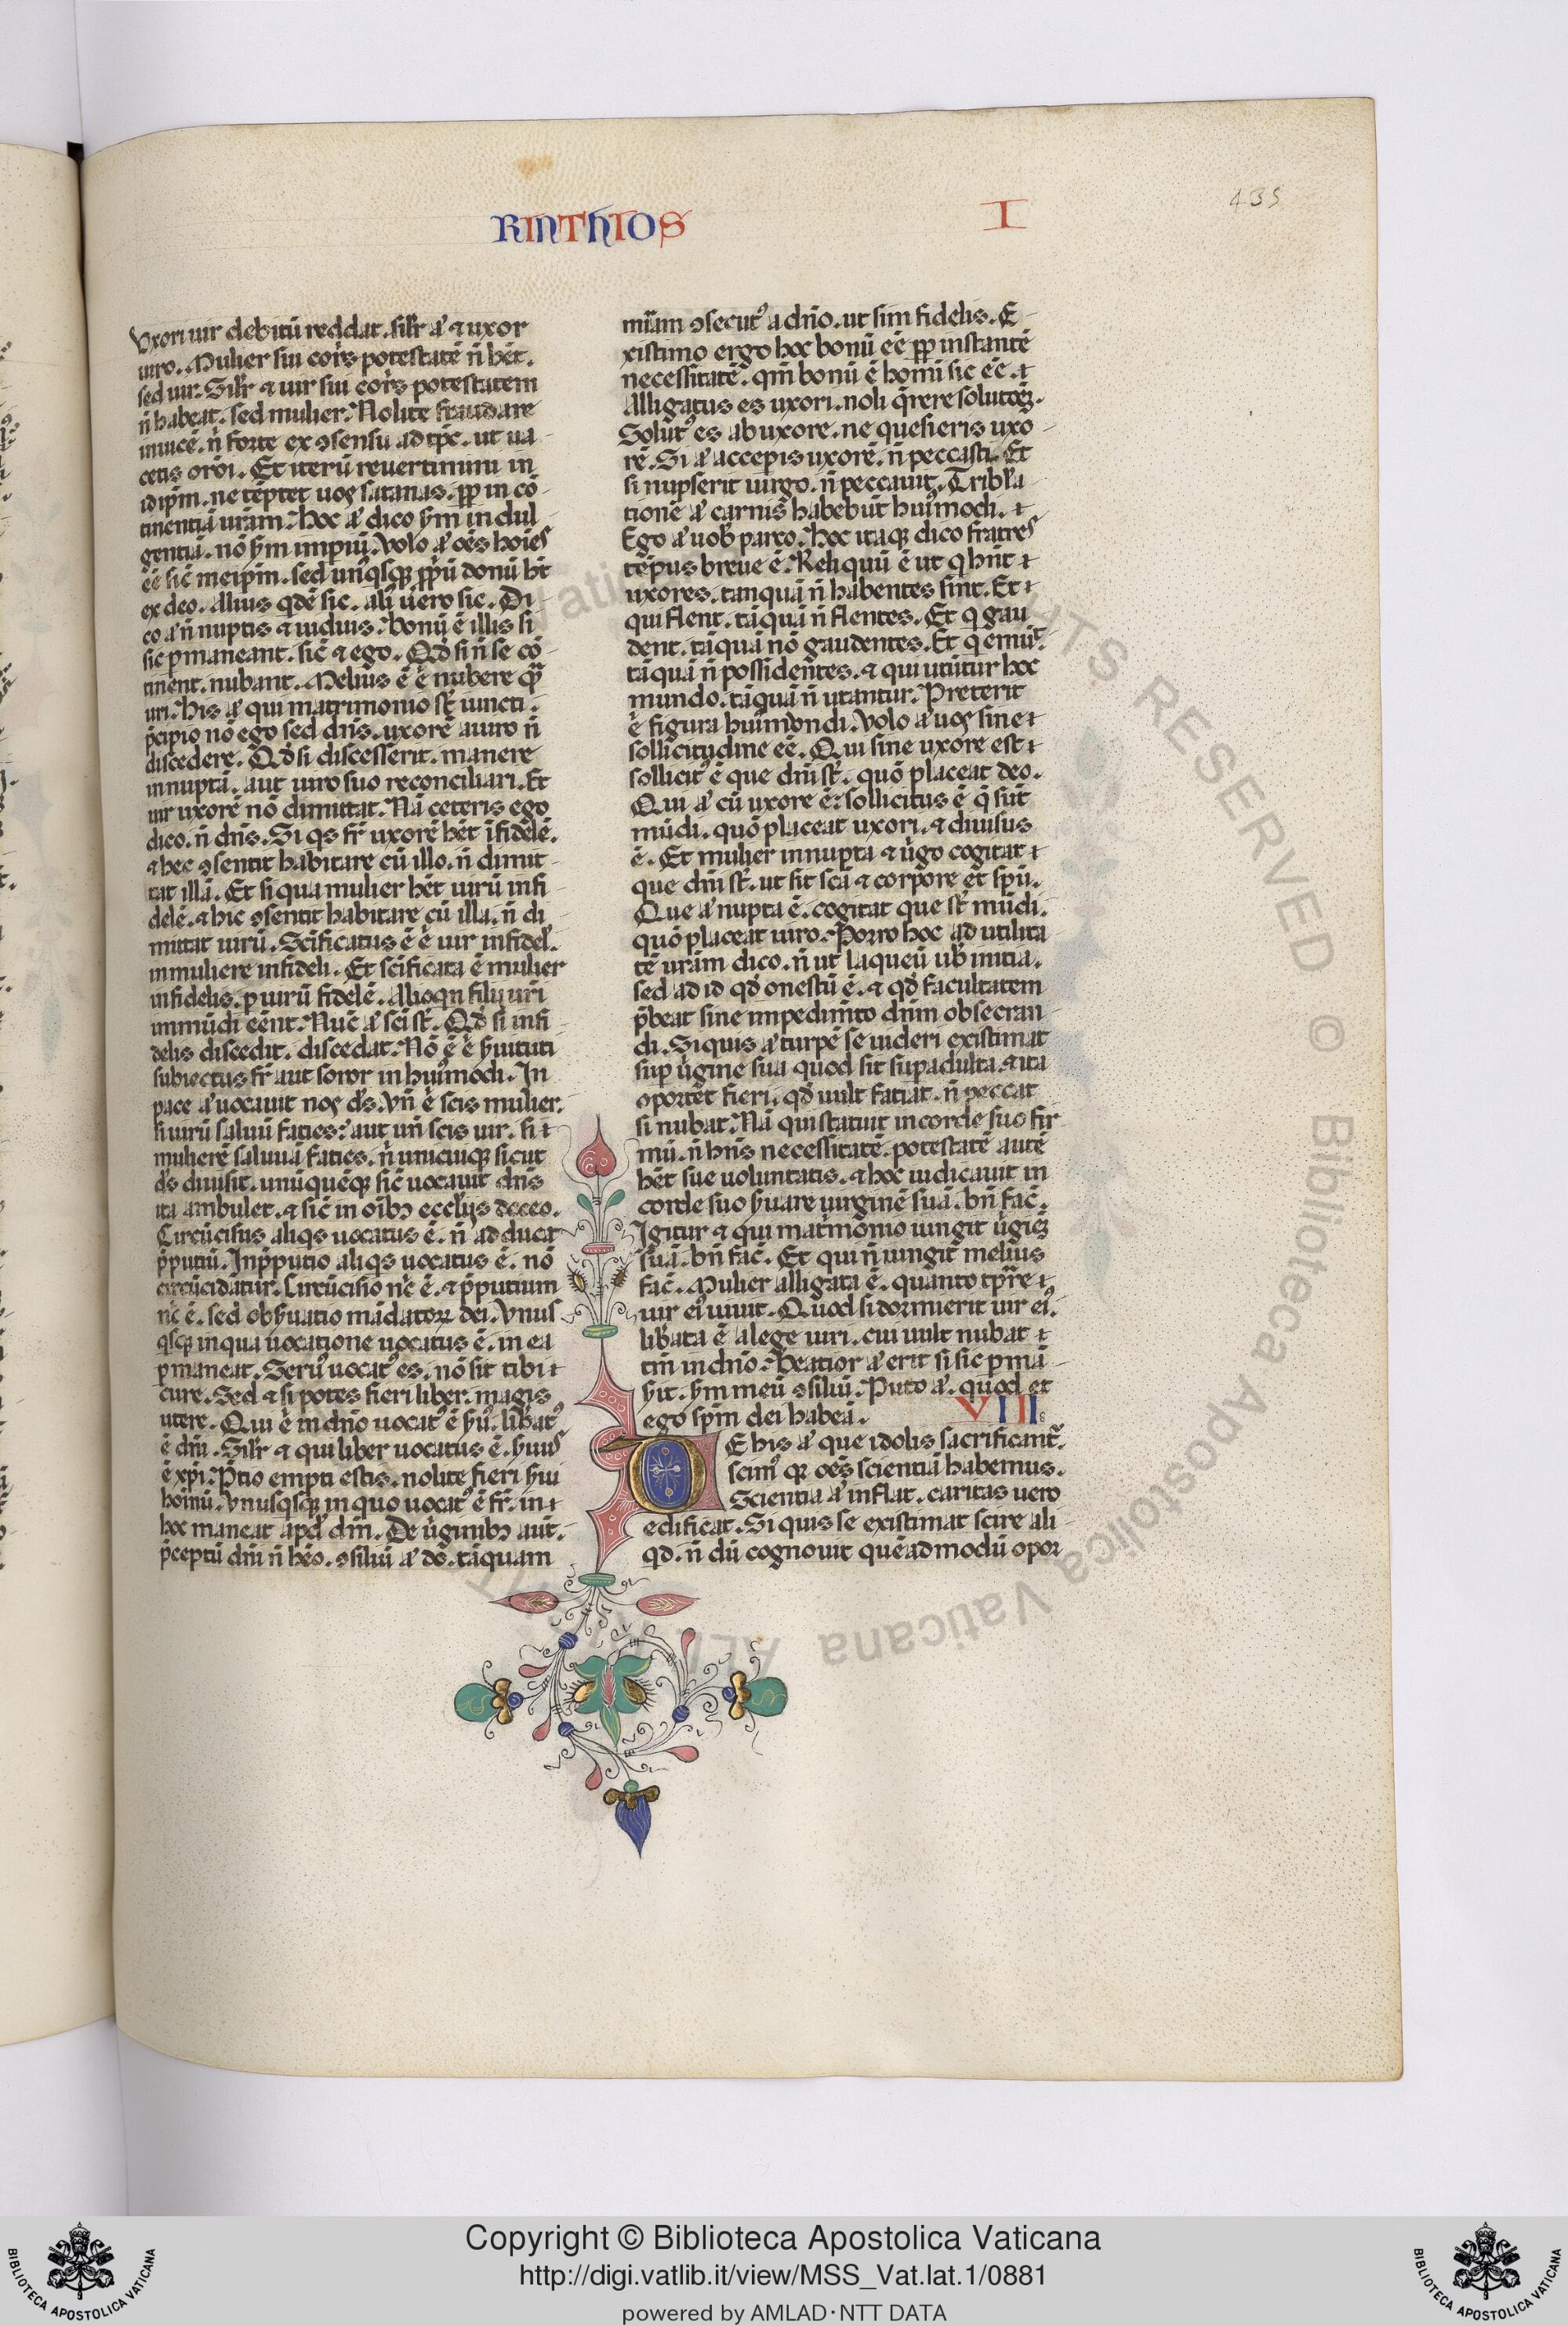 RINTHIOS I
435
Vxori uir debitū reddat. silr̄ aͥ ⁊ uxor
uiro. Mulier sui cor̄is potestatē n̄ hēt.
sed uir. Silr̄ ⁊ uir sui cor̄is potestatem
n̄ habeat. sed mulier. Nolite fraudare
inuicē. n̄ forte ex ꝯsensu ad tp̄c. ut ua-
cetis oroī. Et iterū reuertimini in
idip̄m. ne tēptet uos satanas. ꝓp̄ in cō-
tinentiā urām. Hoc aͥ dico ẜm indul-
gentiā. nō ẜm impiū. Volo aͥ oēs hoīes
eē sic̄ meip̄m. sed unꝰqsqꝫ ꝓp̄ū donū ht̄
ex deo. Alius qdē sic. aliꝰ uero sic. Di-
co aͥ n̄ nuptis ⁊ uiduis. bonū ē illis si
sic ꝑmaneant. sic̄ ⁊ ego. Qd̄ si n̄ se cō-
tinent. nubant. Melius ē .n. nubere qͣ̄
uri. His aͥ qui matrimonio st̄ iuncti.
p̄cipio nō ego sed dn̄s. uxorē a uiro n̄
discedere. Qd̄ si discesserit. manere
innuptā. aut uiro suo reconciliari. Et
uir uxorē nō dimittat. Nā ceteris ego
dico. n̄ dn̄s. Si qs fr̄ uxorē hēt ifidelē.
⁊ hec ꝯsentit habitare cū illo. n̄ dimit-
tat illā. Et si qua mulier hēt uirū infi-
delē. ⁊ hic ꝯsentit habitare cū illa. n̄ di-
mittat uirū. Sc̄ificatus ē .n. uir infidel̓.
in muliere infideli. Et sc̄ificata ē mulier
infidelis. ꝑ uirū fidelē. Alioqn filij uri
immūdi eēnt. Nūc aͥ sc̄i st̄. Qd̄ si infi-
delis discedit. discedat. Nō ē .n. ẜuituti
subiectus fr̄ aut soror in huiꝰmodi. In
pace aͥ uocauit nos ds̄. Vn̄ .n. scis mulier.
si uirū saluū facies: aut un̄ scis uir. si
mulierē saluuā facies. n̄ unicuiqꝫ sicut
ds̄ diuisit. unūquēqꝫ sic̄ uocauit dn̄s
ita ambulet. ⁊ sic̄ in oībꝫ eccl̄ijs doceo.
Circūcisus aliqs uocatus ē. n̄ adducat
p̄putiū. In p̄putio aliqs uocatus ē. nō
circūcidatur. Circūcisio nͨ ē. ⁊ p̄putium
nͨ ē. sed obẜuatio mādatoꝝ dei. Vnus
qsqꝫ in qua uocatione uocatus ē. in ea
ꝑmaneat. Seruꝰ uocatꝰ es. nō sit tibi
cure. Sed ⁊ si potes fieri liber. magis
utere. Qui .n. in dn̄o uocatꝰ ē ẜuꝰ. lib̄atꝰ
ē dn̄i. Silr̄ ⁊ qui liber uocatus ē. ẜuus
ē xp̄i. P̄tio empti estis. nolite fieri ẜui
hoīnū. Vnusqsqꝫ in quo uocatꝰ ē fr̄. in
hoc maneat apd̄ dm̄. De ūginibꝫ aūt.
p̄ceptū dn̄i n̄ hēo. ꝯsiliū aͥ do. tāquam
mīam ꝯsecutꝰ a dn̄o. ut sim fidelis. E-
xistimo ergo hoc bonū eē ꝓp̄ instantē
necessitatē. qm̄ bonū ē homī sic eē.
Alligatus es uxori. noli q̄rere solutōꝫ.
Solutꝰ es ab uxore. ne quesieris uxo-
rē. Si aͥ accepis uxorē. n̄ peccasti. Et
si nupserit uirgo. n̄ peccauit. Tribl̄a-
tionē aͥ carnis habebūt huiꝰmodi.
Ego aͥ uob̄ parco. Hoc itaqꝫ dico fratres
tēpus breue ē. Reliquū ē ut q hn̄t
uxores. tanquā n̄ habentes sint. Et
qui flent. tāquā n̄ flentes. Et q gau
dent. tāquā nō gaudentes. Et q emūt.
tāquā n̄ possidentes. ⁊ qui utūtur hoc
mundo. tāquā n̄ utantur. Preterit
.n. figura hui mondi. Volo aͥ uos sine
sollicitudine eē. Qui sine uxore est
sollicitꝰ ē que dn̄i st̄. quō placeat deo.
Qui aͥ cū uxore ē: sollicitus ē q̄ sūt
mūdi. quō placeat uxori. ⁊ diuisus
ē. Et mulier innupta ⁊ ūgo cogitat
que dn̄i st̄. ut sit sc̄a ⁊ corpore et sp̄u.
Que aͥ nupta ē. cogitat que st̄ mūdi.
quō placeat uiro. Porro hoc ad utilita
tē urām dico. n̄ ut laqueū ub̄ initia.
sed ad id qd̄ onestū ē. ⁊ qd̄ facultatem
p̄beat sine impedimīto dn̄m obsecran
di. Si quis aͥ turpē se uideri existimat
suꝑ ūgine sua quod sit suꝑadulta. ⁊ ita
oportet fieri. qd̄ uult fatiat. n̄ peccat
si nubat. Nā qui statuit in corde suo fir-
mū. n̄ hn̄s necessitatē. potestatē autē
hēt sue uoluntatis. ⁊ hoc iudicauit in
corde suo ẜuare uirginē suā. bn̄ fac̄.
Igitur ⁊ qui mat̄monio iungit ūgiēꝫ
suā. bn̄ fac̄. Et qui n̄ iungit melius
fac̄. Mulier alligata ē. quanto tp̄re
uir eiꝰ uiuit. Quod si dormierit uir eiꝰ.
lib̄ata ē a lege uiri. cui uult nubat
tm̄ in dn̄o. Beatior aͥ erit si sic ꝑmā-
ẜit. ẜm meū ꝯsiliū. Puto aͥ. quod et
ego sp̄m dei habeā. VIII
DE his aͥ que idolis sacrificant᷑.
scimꝰ qꝫ oēs scientiā habemus.
Scientia aͥ inflat. caritas uero
edificat. Si quis se existimat scire ali-
qd. n̄ dū cognouit quēadmodū opor
ALL RIGHTS RESERVED © Biblioteca Apostolica Vaticana
Copyright © Biblioteca Apostolica Vaticana
http://digi.vatlib.it/view/MSS_Vat.lat.1/0881
powered by AMLAD·NTT DATA
BIBLIOTECA APOSTOLICA VATICANA
BIBLIOTECA APOSTOLICA VATICANA